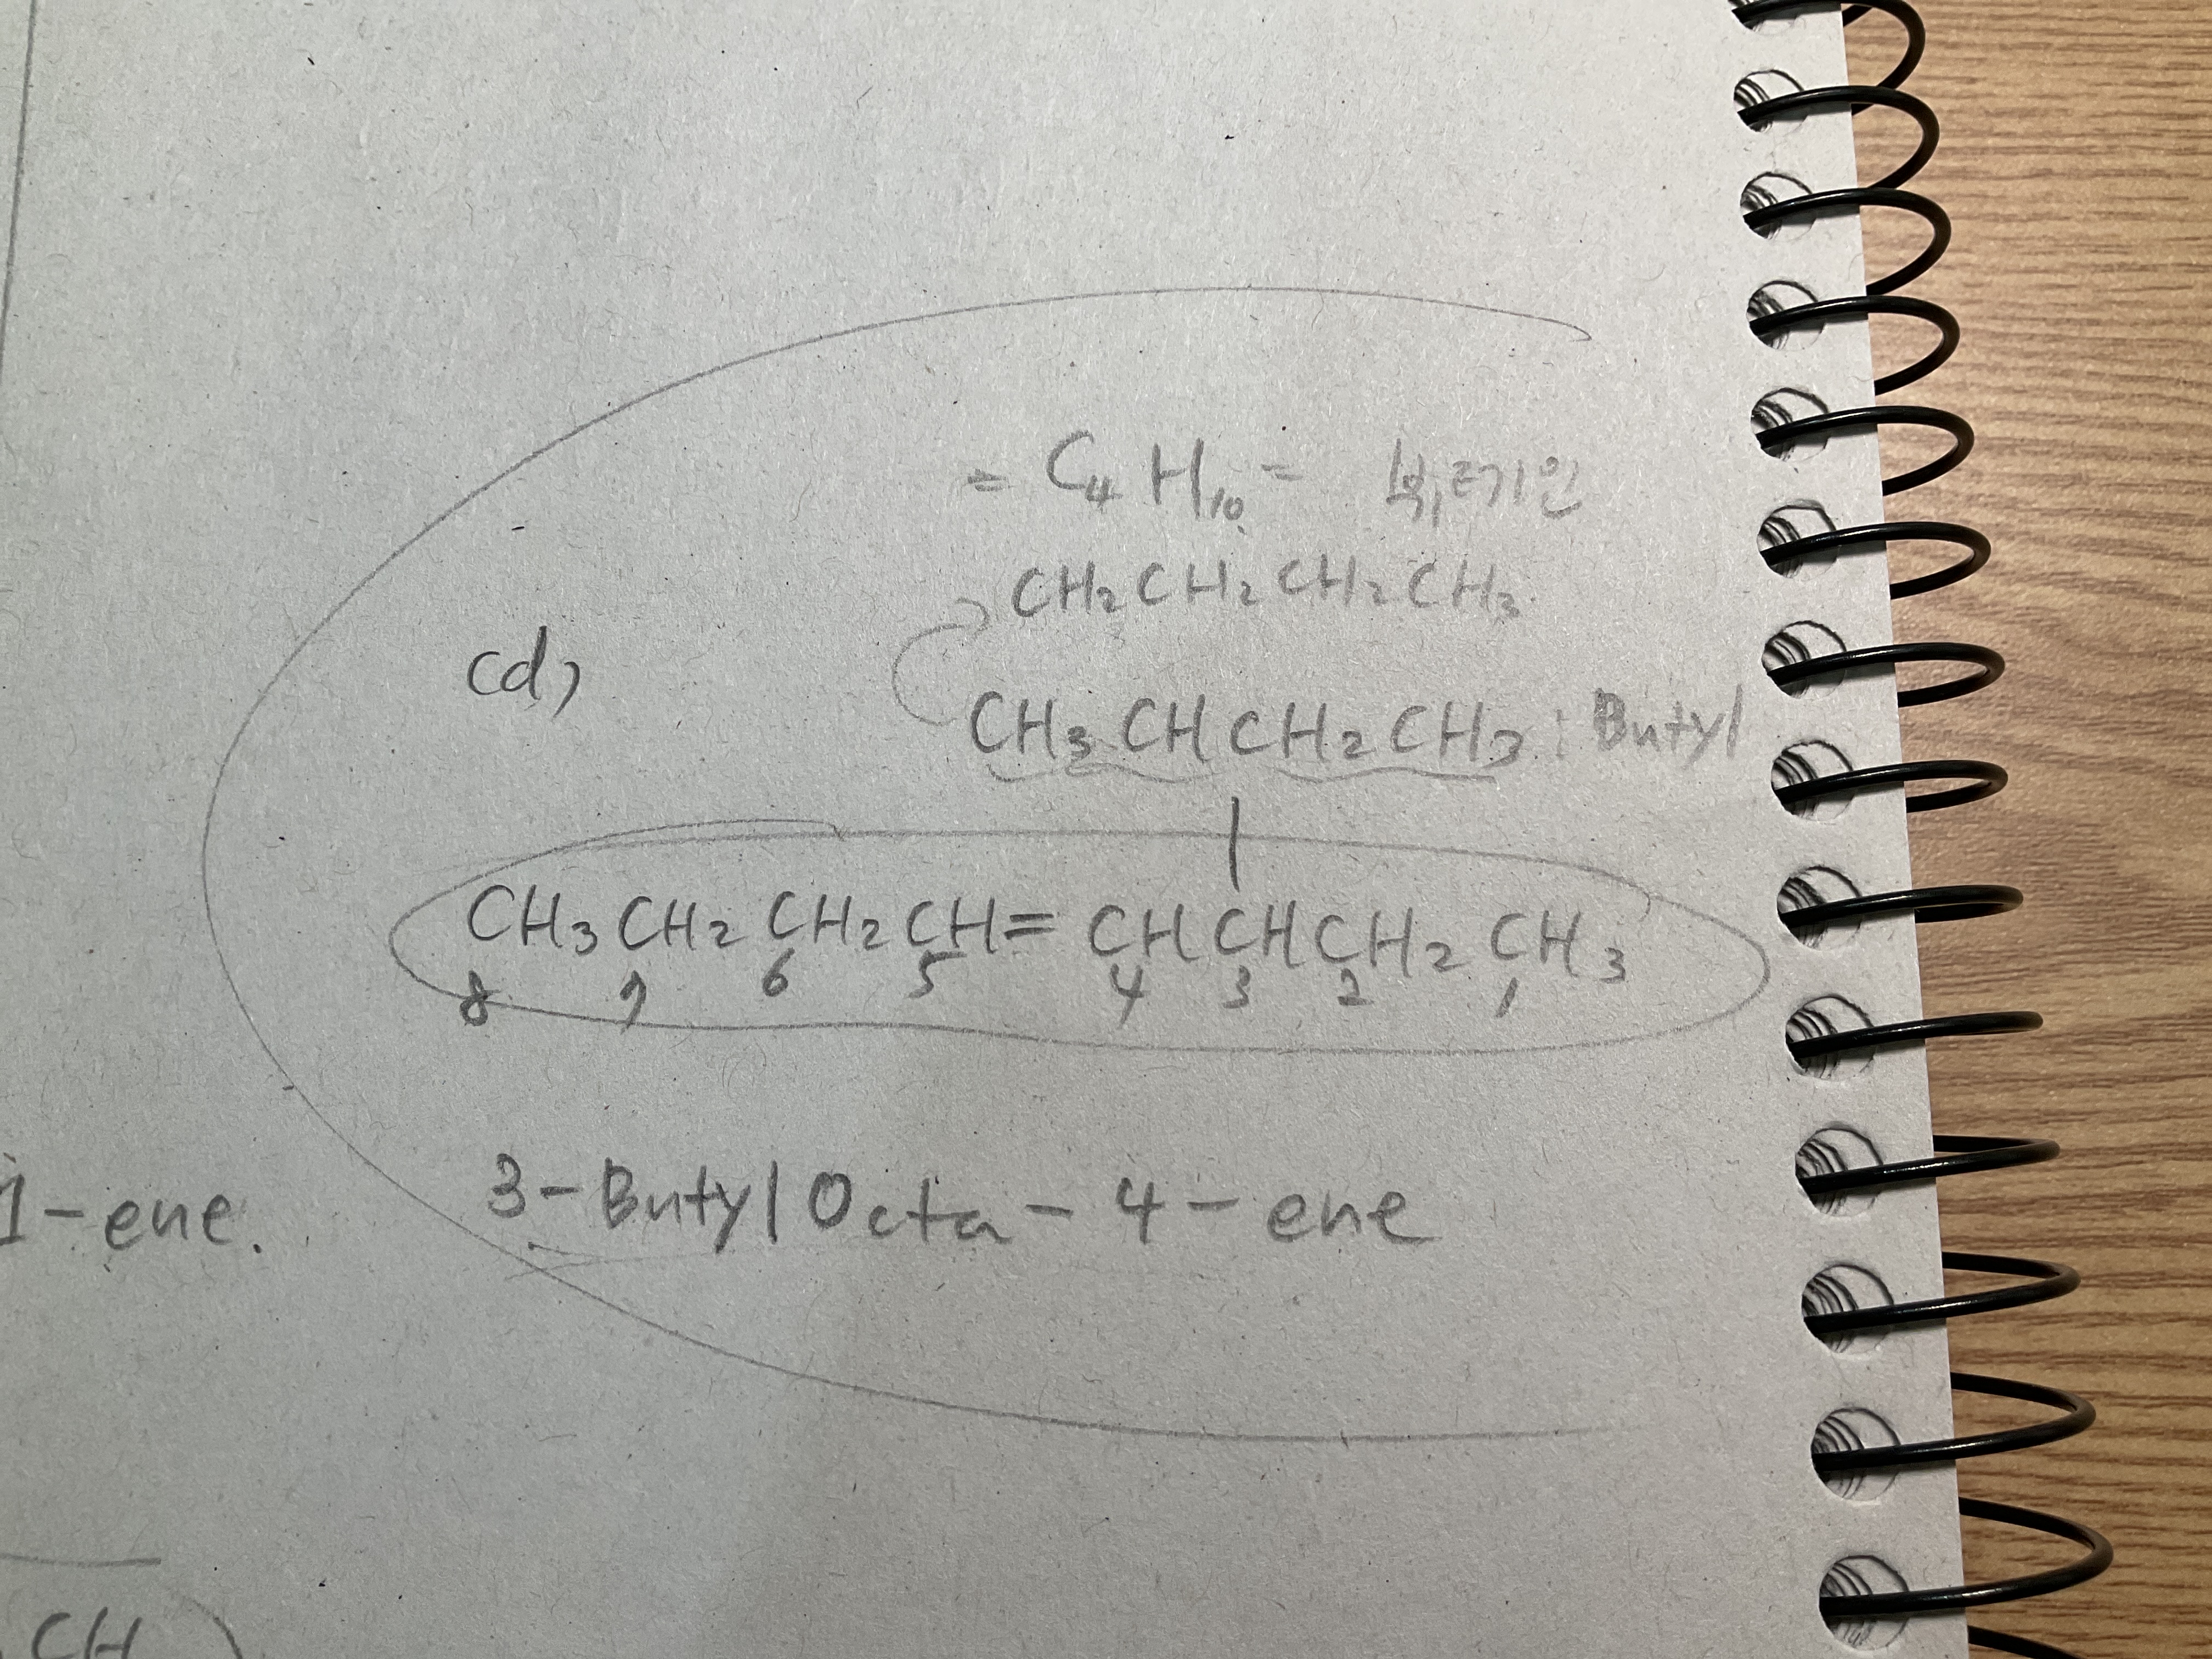 = C4 H10 = 부테인
CH2 CH2 CH2 CH3
(d)
CH3 CH CH2 CH3 : Butyl
CH3 CH2 CH2 CH= CH CH CH2 CH3
8 7 6 5 4 3 2 1
3-Butyl Octa-4-ene
1-ene.
CH